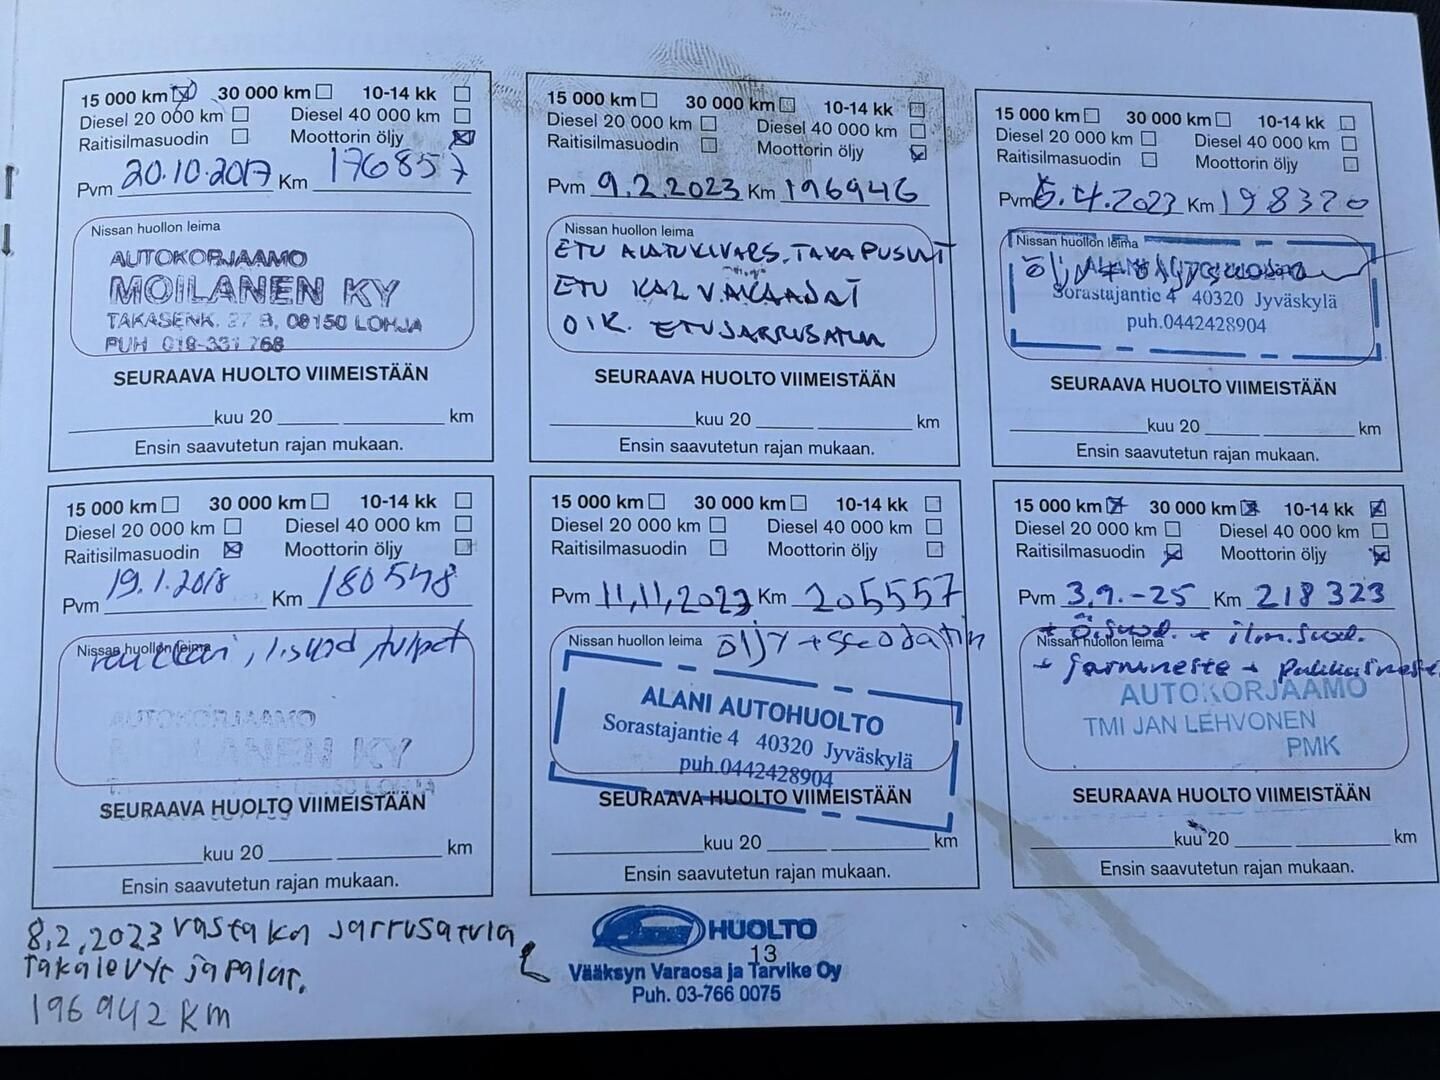 15 000 km 30 000 km 10-14 kk
Diesel 20 000 km Diesel 40 000 km
Raitisilmasuodin Moottorin öljy
Pvm 20.10.2017 Km 176857
Nissan huollon leima
AUTOKORJAAMO
MOILANEN KY
TAKASENK. 27 B, 08150 LOHJA
PUH 019-331 768
SEURAAVA HUOLTO VIIMEISTÄÄN
kuu 20 km
Ensin saavutetun rajan mukaan.
15 000 km 30 000 km 10-14 kk
Diesel 20 000 km Diesel 40 000 km
Raitisilmasuodin Moottorin öljy
Pvm 9.2.2023 Km 196946
Nissan huollon leima
ETU ALATUKIVARS. TAKA PUSLAT
ETU KAL
OIK. ETUJARRUSATULA
SEURAAVA HUOLTO VIIMEISTÄÄN
kuu 20 km
Ensin saavutetun rajan mukaan.
15 000 km 30 000 km 10-14 kk
Diesel 20 000 km Diesel 40 000 km
Raitisilmasuodin Moottorin öljy
Pvm 6.4.2023 Km 198320
Nissan huollon leima
ALANI AUTOHUOLTO
Sorastajantie 4 40320 Jyväskylä
puh.0442428904
SEURAAVA HUOLTO VIIMEISTÄÄN
kuu 20 km
Ensin saavutetun rajan mukaan.
15 000 km 30 000 km 10-14 kk
Diesel 20 000 km Diesel 40 000 km
Raitisilmasuodin Moottorin öljy
Pvm 19.1.2018 Km 180548
Nissan huollon leima
tulpat
AUTOKORJAAMO
MOILANEN KY
SEURAAVA HUOLTO VIIMEISTÄÄN
kuu 20 km
Ensin saavutetun rajan mukaan.
15 000 km 30 000 km 10-14 kk
Diesel 20 000 km Diesel 40 000 km
Raitisilmasuodin Moottorin öljy
Pvm 11,11,2023 Km 205557
Nissan huollon leima öljy + suodatin
ALANI AUTOHUOLTO
Sorastajantie 4 40320 Jyväskylä
puh.0442428904
SEURAAVA HUOLTO VIIMEISTÄÄN
kuu 20 km
Ensin saavutetun rajan mukaan.
15 000 km 30 000 km 10-14 kk
Diesel 20 000 km Diesel 40 000 km
Raitisilmasuodin Moottorin öljy
Pvm 3.9.-25 Km 218323
+ ö.suod. + ilm.suod.
Nissan huollon leima
+ jarruneste + pakkasneste
AUTOKORJAAMO
TMI JAN LEHVONEN
PMK
SEURAAVA HUOLTO VIIMEISTÄÄN
kuu 20 km
Ensin saavutetun rajan mukaan.
8,2,2023 vasta ka jarrusatula
Takalevyt ja palat.
196942 km
HUOLTO
13
Vääksyn Varaosa ja Tarvike Oy
Puh. 03-766 0075